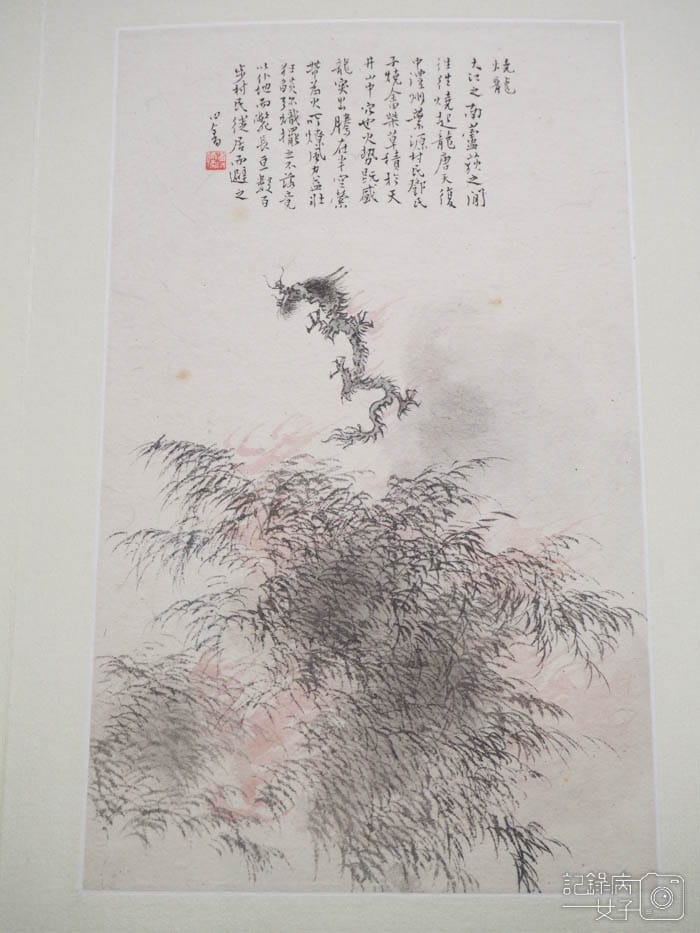 燒龍
大江之南蘆荻之間
往往燒起龍唐天復
中澧州葉源村民鄧氏
子燒畬柴草積於天
井山中穴也火勢既盛
龍突出騰在半空縈
帶為火所燎風力益壯
狂燄彌熾擺之不落竟
以仆地而斃長亘數百
步村民徙居而避之
心畬
記錄
女子